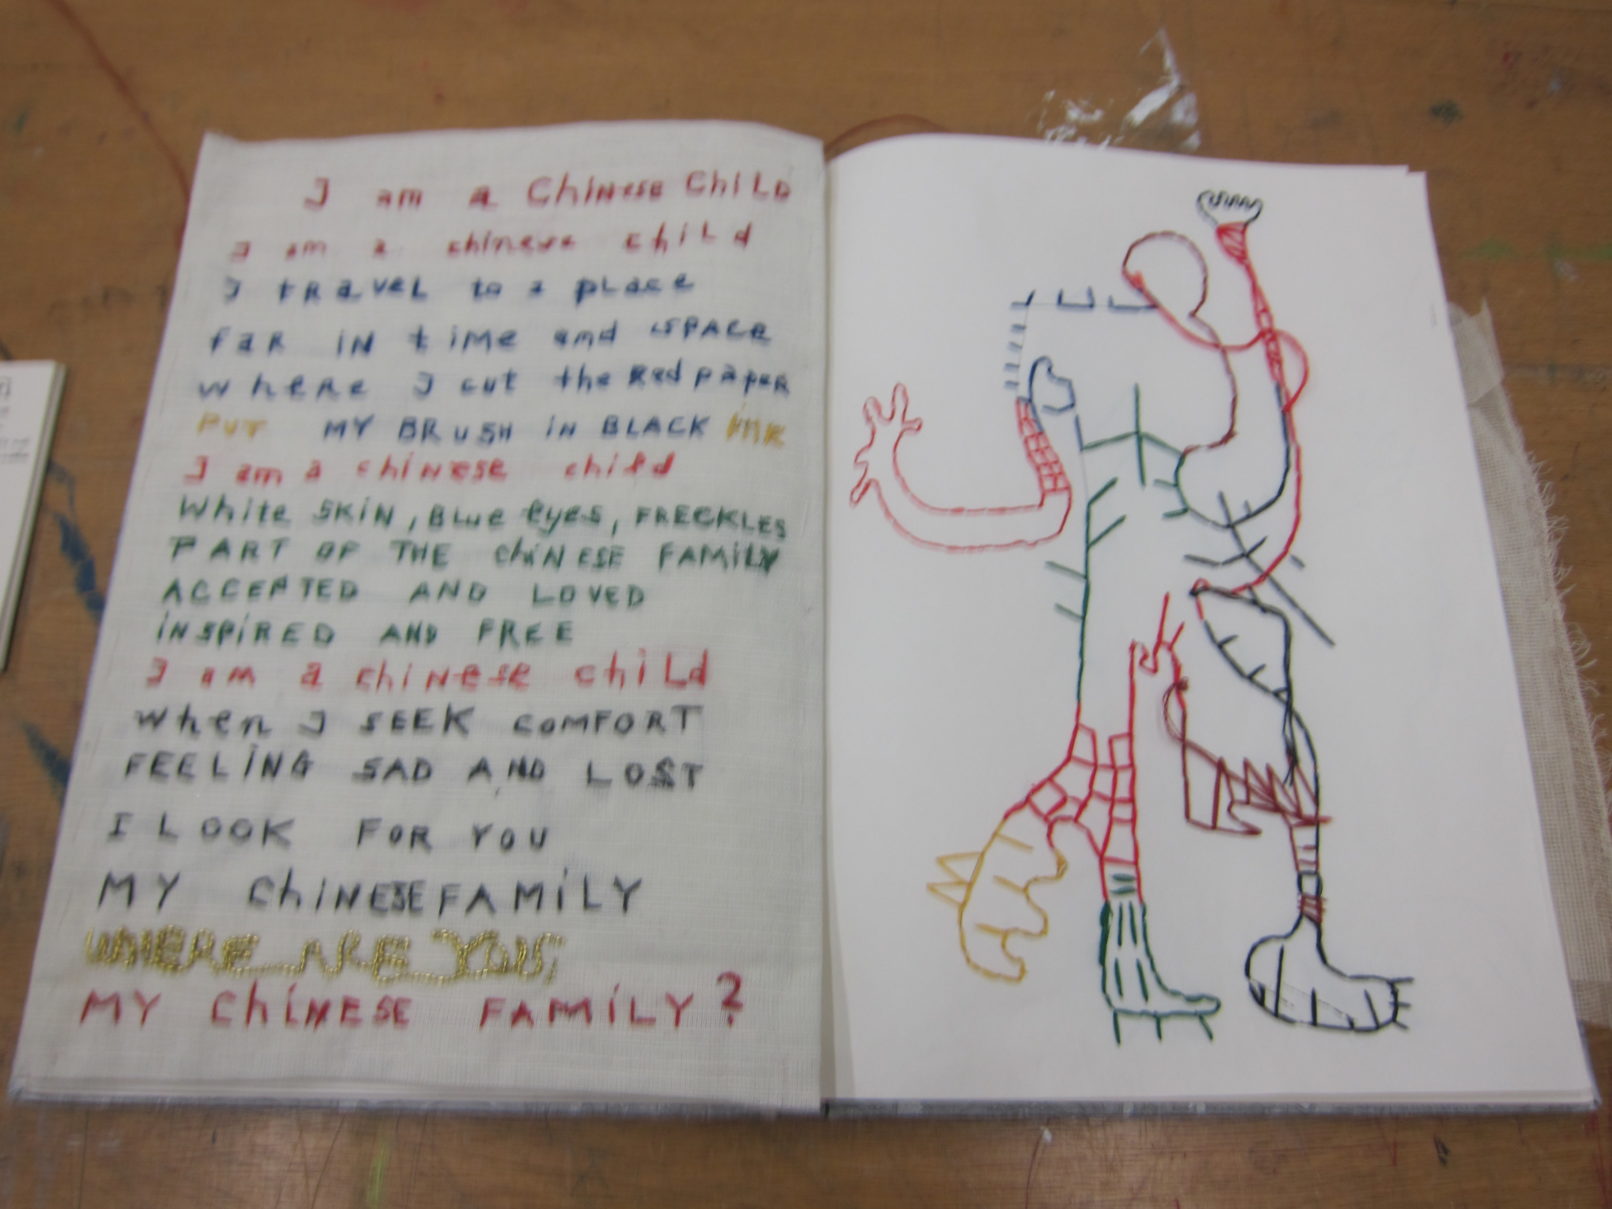 I am a ChiNese ChiLD
I am a chinese chiLd
I tRaveL to a place
faR IN time and SPACE
where I cut the Red papeR
PUT MY BRUSH iN BLACK iNK
I am a chiNese child
White SKiN, BLue eyes, FRECKLES
PART OF THE ChiNESE FAMiLY
ACCEPTED AND LOVED
iNSPiRED AND FREE
I am a chiNese chiLd
when I SEEK COMFORT
FEELiNG SAD AND LOST
I LOOK FOR YOU
MY ChiNESE FAMiLY
WHERE ARE YOU,
MY ChiNESE FAMiLY?